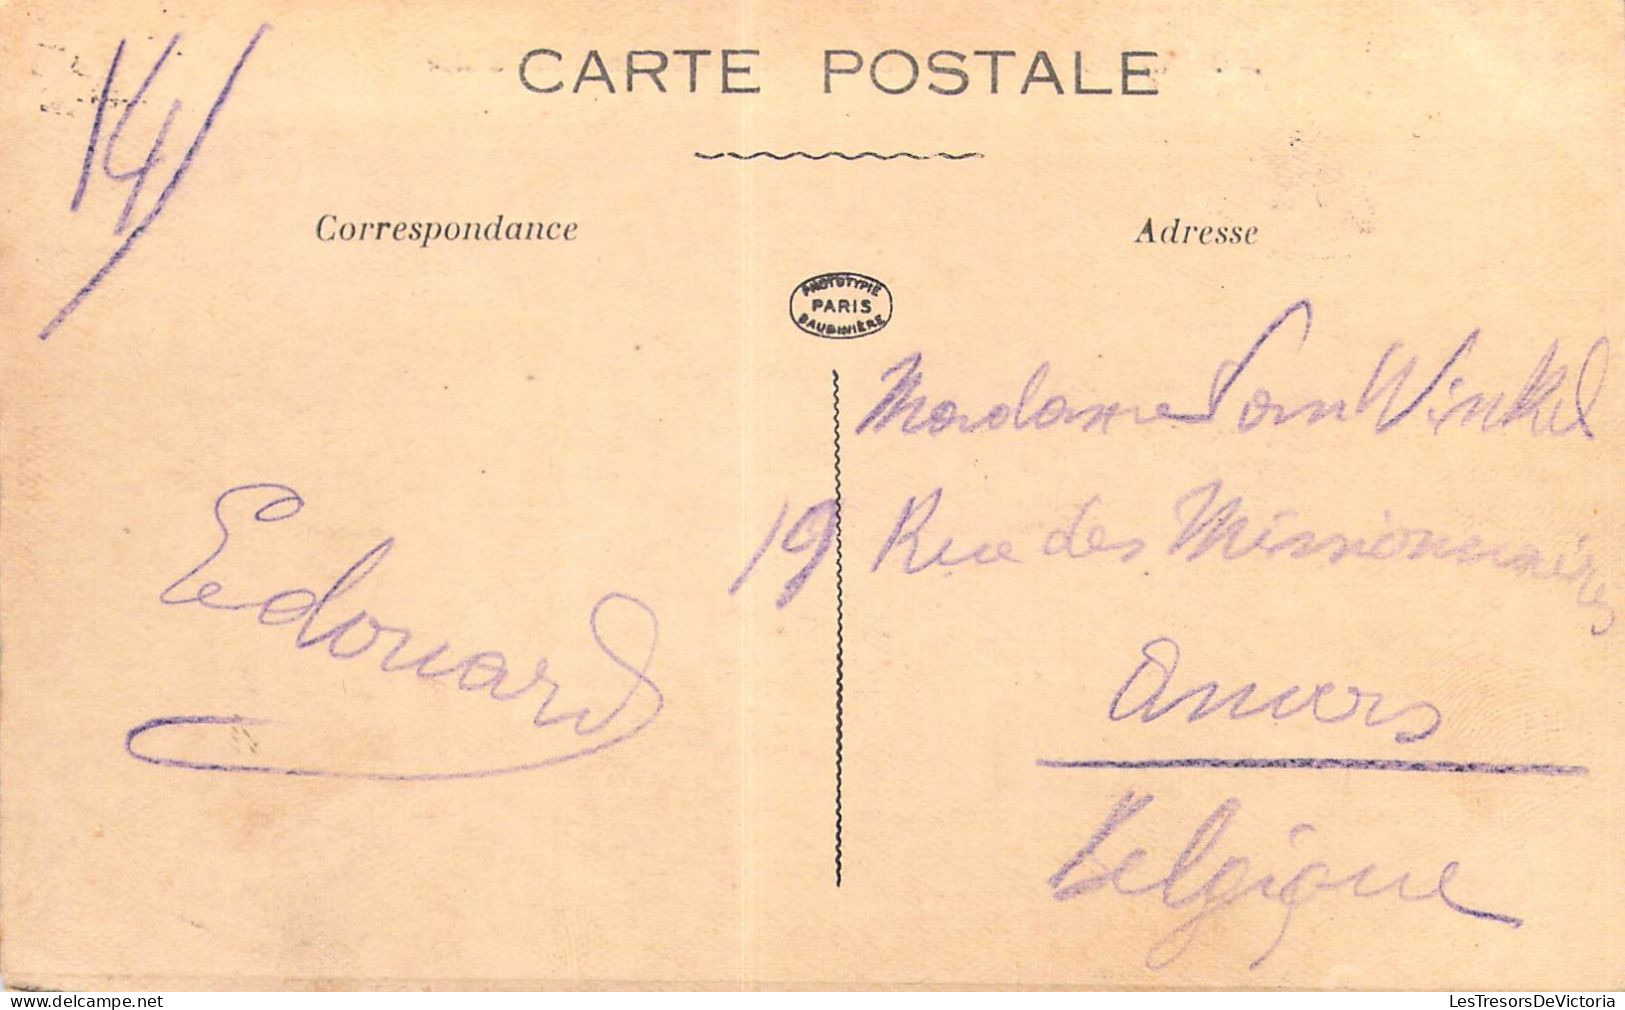 CARTE POSTALE
14/
Correspondance
Adresse
PHOTOTYPIE
PARIS
BAUDINIÈRE
Madame Van Winkel
19 Rue des Missionnaires
Anvers
Belgique
Edouard
LesTresorsDeVictoria